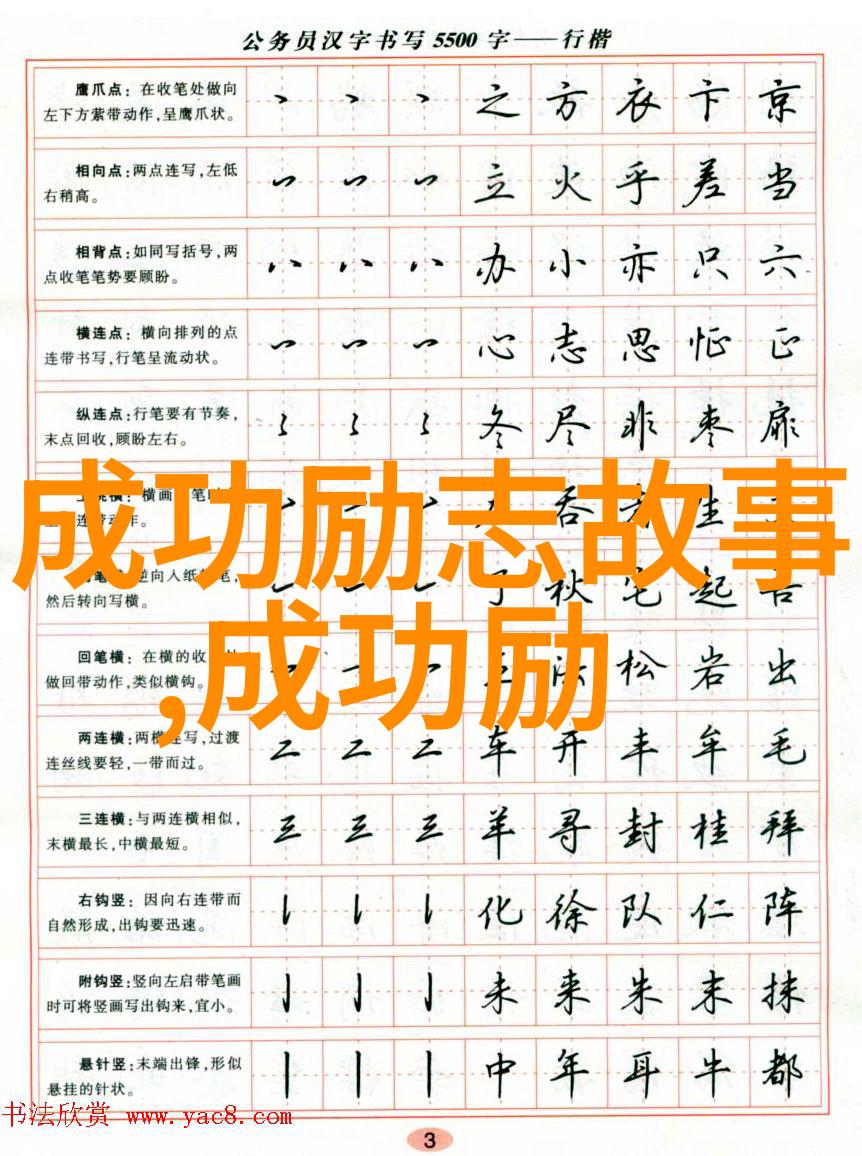 公务员汉字书写 5500 字——行楷
鹰爪点：在收笔处做向
左下方萦带动作,呈鹰爪状。
之 方 衣 卞 京
相向点：两点连写,左低
右稍高。
立 火 乎 差 当
相背点：如同写括号,两
点收笔笔势要顾盼。
办 小 亦 只 六
横连点：横向排列的点
连带书写,行笔呈流动状。
心 志 思 怔 正
纵连点：行笔要有节奏,
末点回收,顾盼左右。
冬 尽 非 枣 扉
成功励志故事
,成功励
横画 笔
连带动作。
吞 生
逆向入纸 笔,
然后转向写横。
了 秋 宅 起
回笔横：在横的收
做回带动作,类似横钩。
三 法 松 岩 出
两连横：两横连写,过渡
连丝线要轻,一带而过。
车 开 丰 牟 毛
三连横：与两连横相似,
末横最长,中横最短。
羊 寻 封 桂 拜
右钩竖：因向右连带而
自然形成,出钩要迅速。
化 徐 队 仁 阵
附钩竖：竖向左启带笔画
时可将竖画写出钩来,宜小。
未 来 朱 末 抹
悬针竖：末端出锋,形似
悬挂的针状。
中 年 耳 牛 都
书法欣赏 www.yac8.com
3